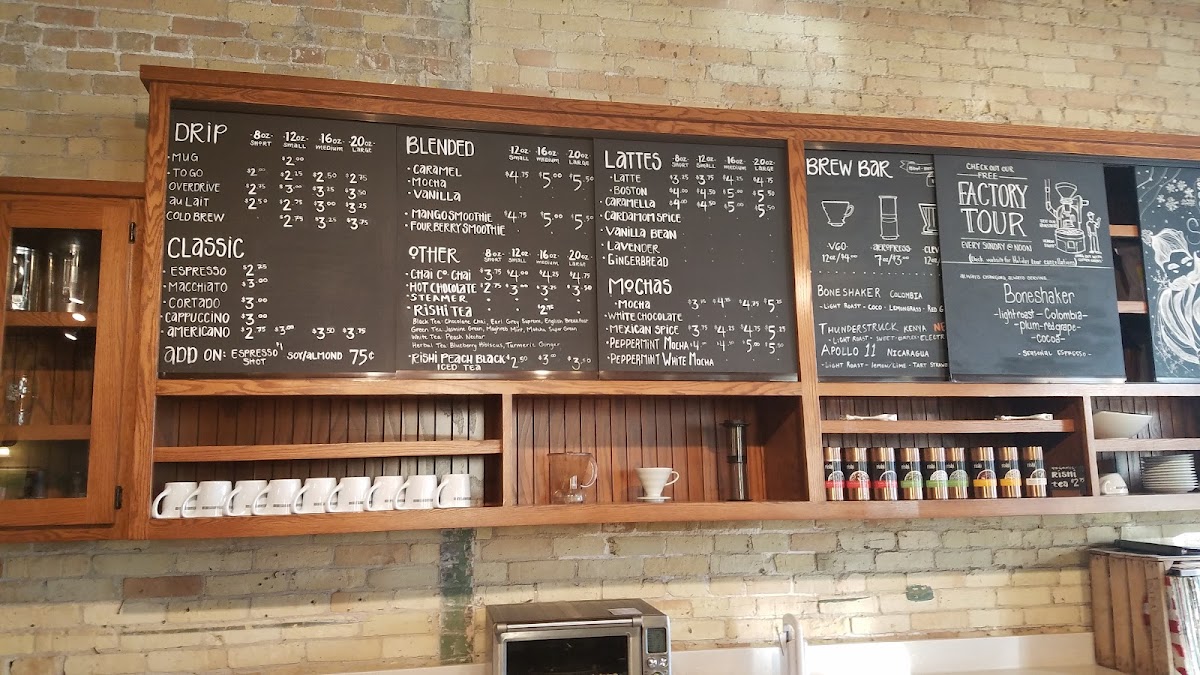 DRIP ·8oz· SHORT ·12oz· SMALL ·16oz· MEDIUM ·20oz· LARGE
·MUG $2.00
·TO GO $2.00 $2.25 $2.50 $2.75
OVERDRIVE $2.75 $3.00 $3.25 $3.50
au Lait $2.50 $2.75 $3.00 $3.25
COLD BREW $2.75 $3.25 $3.75
CLASSIC
·ESPRESSO $2.25
·MACCHIATO $3.00
·CORTADO $3.00
CAPPUCCINO $3.00
·AMERICANO $2.75 $3.00 $3.50 $3.75
ADD ON: ESPRESSO SHOT $1 SOY/ALMOND 75¢
BLENDED ·12oz· SMALL ·16oz· MEDIUM 20oz LARGE
·CARAMEL $4.75 $5.00 $5.50
·MOCHA
·VANILLA
·MANGO SMOOTHIE $4.75 $5.00 $5.50
·FOUR BERRY SMOOTHIE
OTHER 8oz SHORT 12oz SMALL ·16oz MEDIUM 20oz LARGE
·CHAI CO CHAI $3.75 $4.00 $4.25 $4.75
HOT CHOCOLATE $2.75 $3.00 $3.25 $3.50
·STEAMER
·RISHI TEA $2.75
Black Tea: Chocolate Chai, Earl Grey Supreme, English Breakfast
Green Tea: Jasmine Green, Maghreb Mint, Matcha Super Green
White Tea: Peach Nectar
Herbal Tea: Blueberry Hibiscus, Turmeric Ginger
·RISHI PEACH BLACK ICED TEA $2.50 $3.00 $3.50
LATTES ·8oz SHORT ·12oz SMALL ·16oz MEDIUM ·20oz LARGE
·LATTE $3.25 $3.75 $4.25 $4.75
·BOSTON $4.00 $4.50 $5.00 $5.50
CARAMELLA $4.00 $4.50 $5.00 $5.50
·CARDAMOM SPICE
·VANILLA BEAN
·LAVENDER
·GINGERBREAD
MOCHAS
·MOCHA $3.75 $4.25 $4.75 $5.25
WHITE CHOCOLATE
·MEXICAN SPICE $3.75 $4.25 $4.75 $5.25
·PEPPERMINT MOCHA $4.- $4.50 $5.00 $5.50
·PEPPERMINT WHITE MOCHA
BREW BAR
·VGO· ·AEROPRESS· ·CLEV
12oz/$4.00 7oz/$3.00 12oz/
BONESHAKER COLOMBIA
·LIGHT ROAST· COCO·LEMONGRASS·RED G
THUNDERSTRUCK KENYA NE
·LIGHT ROAST·
APOLLO 11 NICARAGUA
·LIGHT ROAST·LEMON/LIME·TART
CHECK OUT OUR
FREE
FACTORY
TOUR
EVERY SUNDAY @ NOON
ALWAYS CHANGING, ALWAYS SERVING...
Boneshaker
-light roast-Colombia-
-plum-red grape-
-cocoa-
·SEASONAL ESPRESSO·
RISHI
TEA $2.75